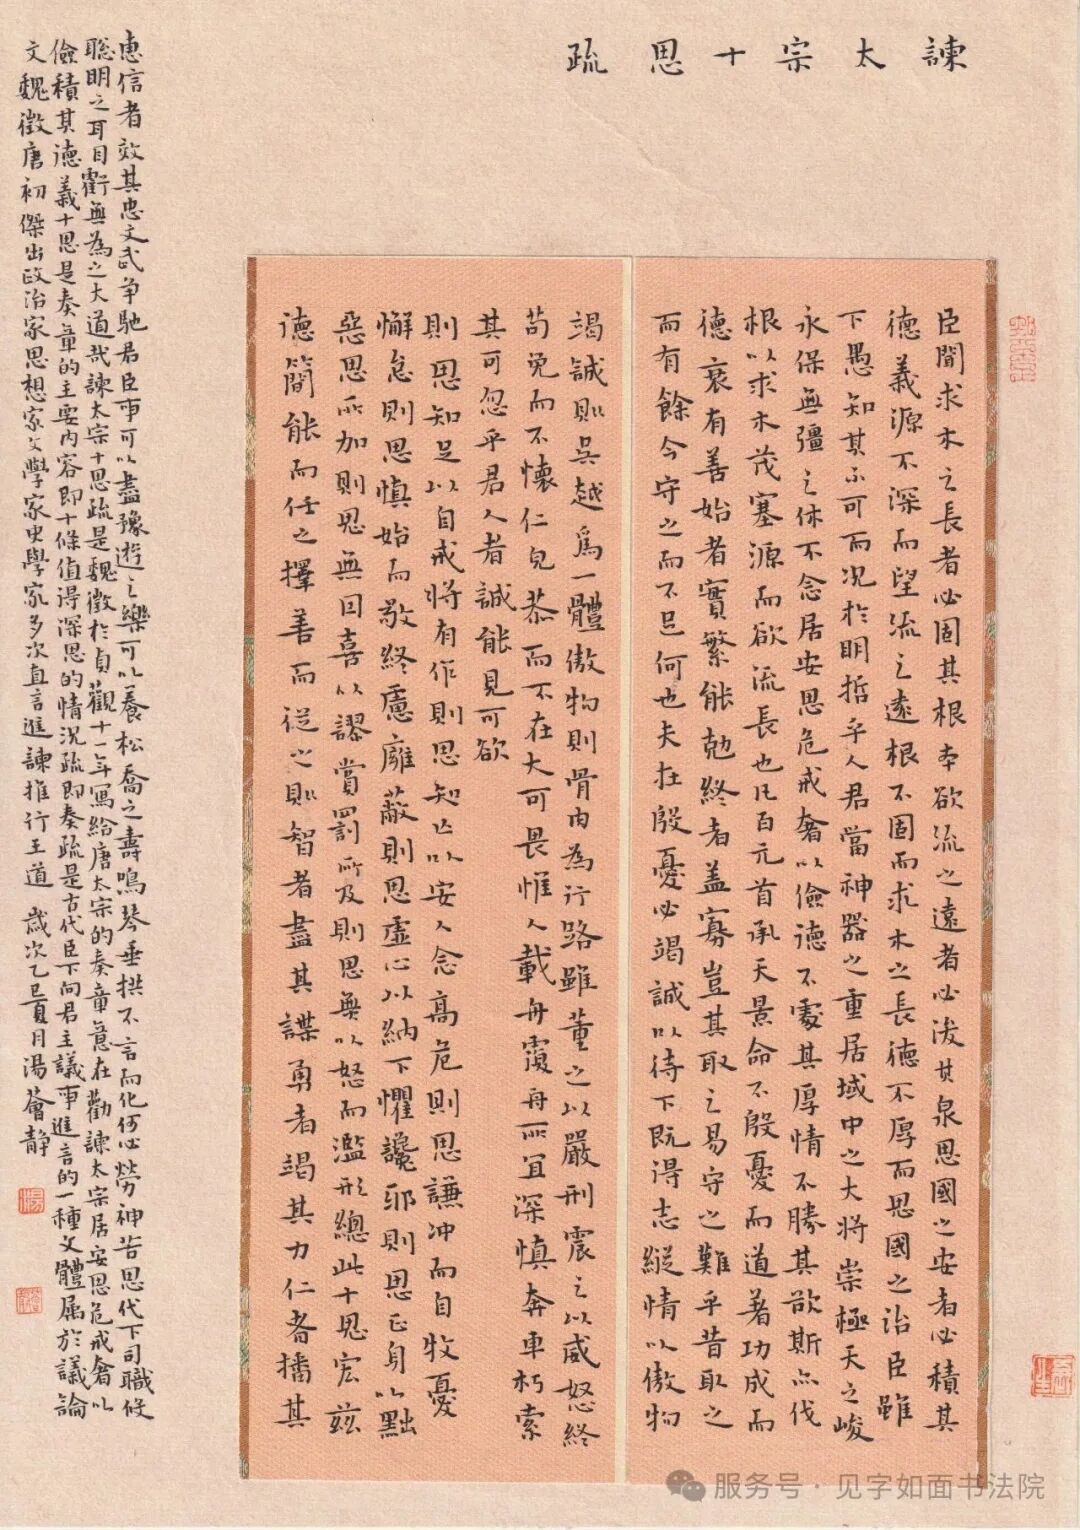 諫太宗十思疏
臣聞求木之長者必固其根本欲流之遠者必浚其泉思國之安者必積其
德義源不深而望流之遠根不固而求木之長德不厚而思國之治臣雖
下愚知其不可而況於明哲乎人君當神器之重居域中之大將崇極天之峻
永保無彊之休不念居安思危戒奢以儉德不處其厚情不勝其欲斯亦伐
根以求木茂塞源而欲流長也凡百元首承天景命不殷憂而道著功成而
德衰有善始者實繁能剋終者蓋寡豈其取之易守之難乎昔取之
而有餘今守之而不足何也夫在殷憂必竭誠以待下既得志縱情以傲物
竭誠則吳越為一體傲物則骨肉為行路雖董之以嚴刑震之以威怒終
苟免而不懷仁皃恭而不在大可畏惟人載舟覆舟所宜深慎奔車朽索
其可忽乎君人者誠能見可欲
則思知足以自戒將有作則思知止以安人念高危則思謙沖而自牧憂
懈怠則思慎始而敬終慮廱蔽則思虛心以納下懼讒邪則思正身以黜
惡恩所加則思無因喜以謬賞罰所及則思無以怒而濫刑總此十思宏茲
德簡能而任之擇善而從之則智者盡其謀勇者竭其力仁者播其
惠信者效其忠文武爭馳君臣事可以盡豫遊之樂可以養松喬之壽鳴琴垂拱不言而化何必勞神苦思代下司職役
聰明之耳目虧無為之大道哉諫太宗十思疏是魏徵於貞觀十一年寫給唐太宗的奏章意在勸諫太宗居安思危戒奢以
儉積其德義十思是奏章的主要內容即十條值得深思的情況疏即奏疏是古代臣下向君主議事進言的一種文體屬於議論
文魏徵唐初傑出政治家思想家文學家史學家多次直言進諫推行王道 歲次乙巳夏月湯薈靜
服务号·见字如面书法院